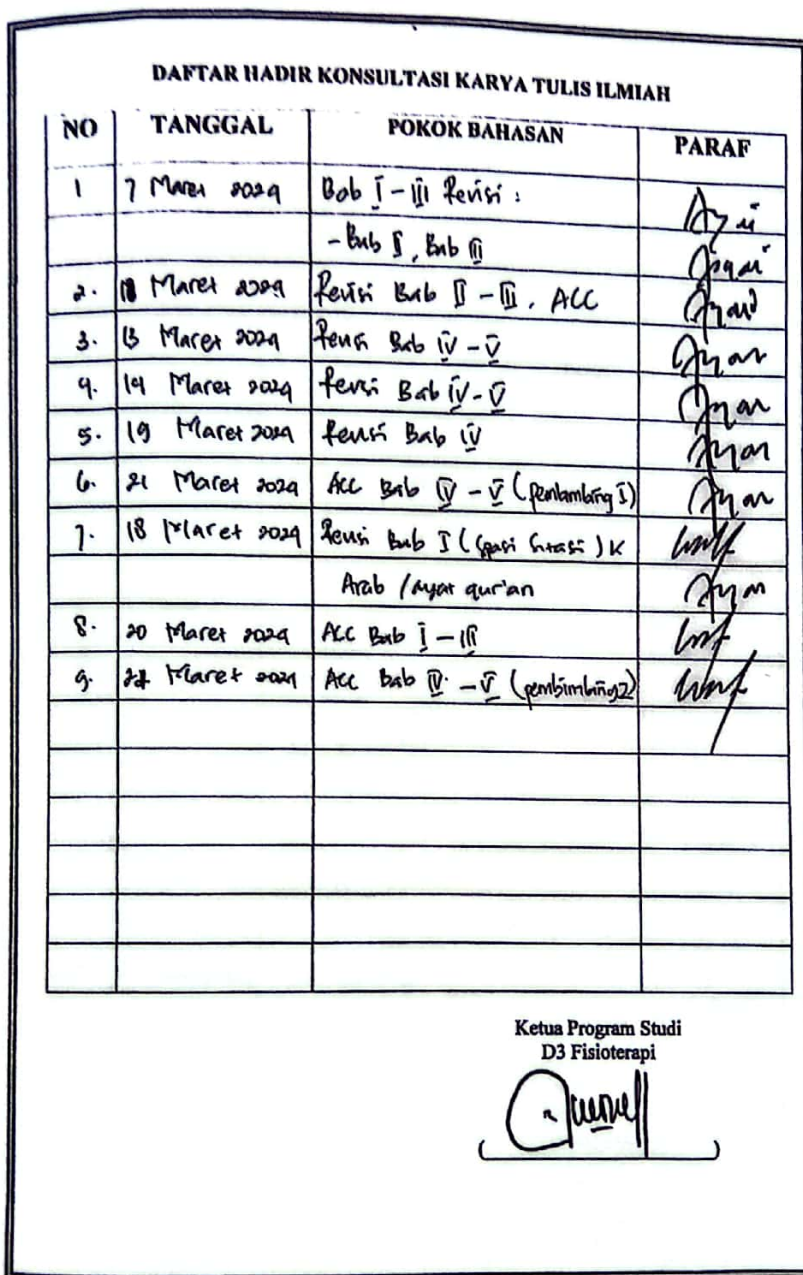 DAFTAR HADIR KONSULTASI KARYA TULIS ILMIAH
NO TANGGAL POKOK BAHASAN PARAF
1 7 Maret 2024 Bab I - III Revisi :
- Bab II, Bab III
2. Maret 2024 Revisi Bab II - III, ACC
3. 13 Maret 2024 Revisi Bab IV - V
4. 14 Maret 2024 Revisi Bab IV - V
5. 19 Maret 2024 Revisi Bab IV
6. 21 Maret 2024 ACC Bab IV - V (pembimbing I)
7. 18 Maret 2024 Revisi Bab I (spasi sitasi)
Arab / ayat qur'an
8. 20 Maret 2024 ACC Bab I - III
9. Maret 2024 ACC Bab IV - V (pembimbing 2)
Ketua Program Studi
D3 Fisioterapi